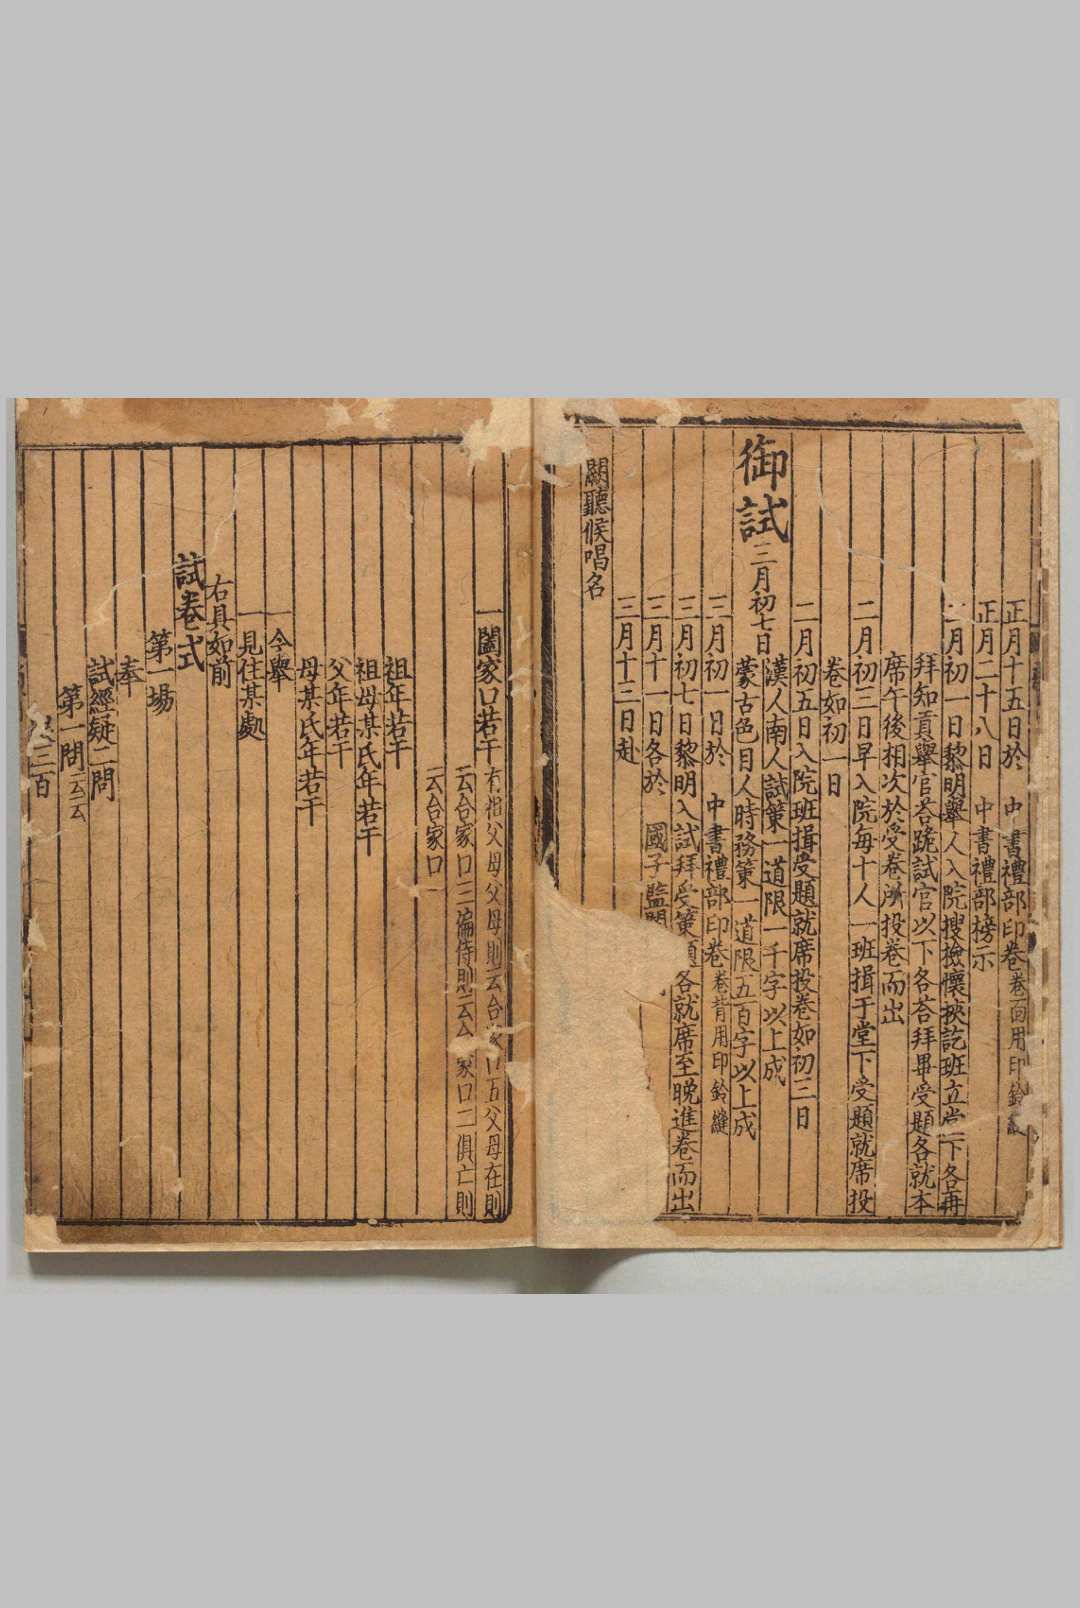 正月十五日於　中書禮部印卷卷面用印鈐縫
正月二十八日　中書禮部榜示
二月初一日黎明舉人入院搜撿懷挾訖班立堂下各再
拜知貢舉官荅跪試官以下各荅拜畢受題各就本
席午後相次於受卷所投卷而出
二月初三日早入院每十人一班揖于堂下受題就席投
卷如初一日
二月初五日入院班揖受題就席投卷如初三日
漢人南人試策一道限一千字以上成
蒙古色目人時務策一道限五百字以上成
御試三月初七日
三月初一日於　中書禮部印卷卷背用印鈐縫
三月初七日黎明入試拜受策題各就席至晚進卷而出
三月十一日各於　國子監
三月十三日赴
闕聽候唱名
一闔家口若干有祖父母父母則云合家口五父母在則
云合家口三偏侍則云合家口二俱亡則
云合家口一
祖年若干
祖母某氏年若干
父年若干
母某氏年若干
今舉
一見住某處
右具如前
試卷式
第一場
奉
試經疑二問
第一問云云
三百